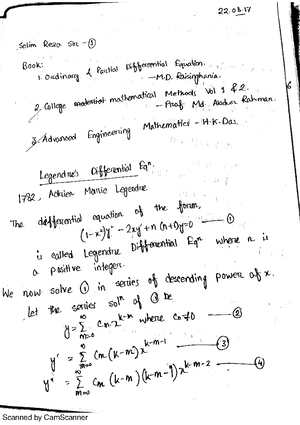 22.03.17
Selim Reza Sir - ①
Book:
1. Ordinary & Partial Differential Equation.
— M.D. Raisinghania.
2. College mathematical Methods Vol 1 & 2.
— Prof. Md. Abdur Rahman.
3. Advanced Engineering Mathematics - H.K. Das.
Legendre's Differential Eqⁿ.
1782, Adrien Marie Legendre
The differential equation of the form,
(1-x²)y″ - 2xy′ + n(n+1)y=0 —— ①
is called Legendre Differential Eqⁿ where n is
a positive integer.
We now solve ① in series of descending power of x.
Let the series solⁿ of ① be
y = ∑_{m=0}^{∞} Cm x^{k-m} where C₀≠0 —— ②
y′ = ∑_{m=0}^{∞} Cm (k-m) x^{k-m-1} —— ③
y″ = ∑_{m=0}^{∞} Cm (k-m)(k-m-1) x^{k-m-2} —— ④
Scanned by CamScanner